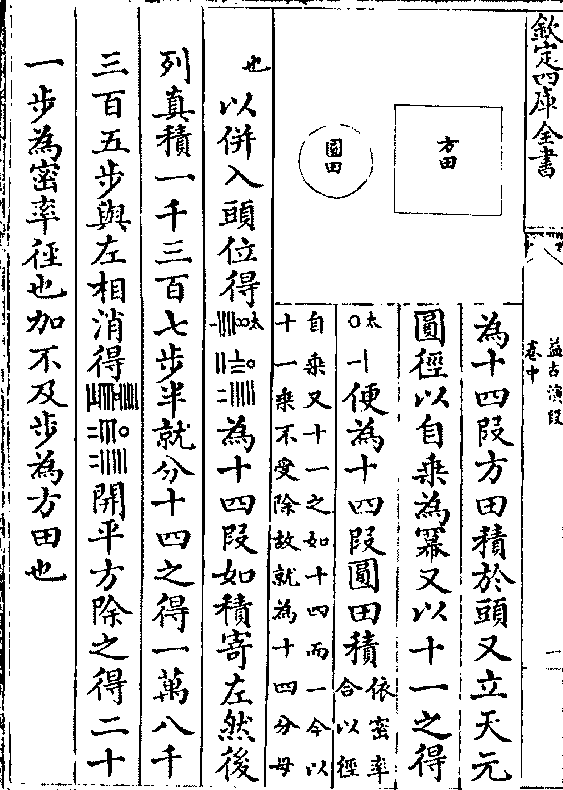 欽定四庫全書
益古演段
卷中
方田
圓田
為十四段方田積於頭又立天元
圓徑以自乘為冪又以十一之得
太
〇
便為十四段圓田積
依密率
合以徑
自乘又十一之如十四而一今以
十一乘不受除故就為十四分母
也
以併入頭位得
太
為十四段如積寄左然後
列真積一千三百七步半就分十四之得一萬八千
三百五步與左相消得
開平方除之得二十
一步為密率徑也加不及步為方田也